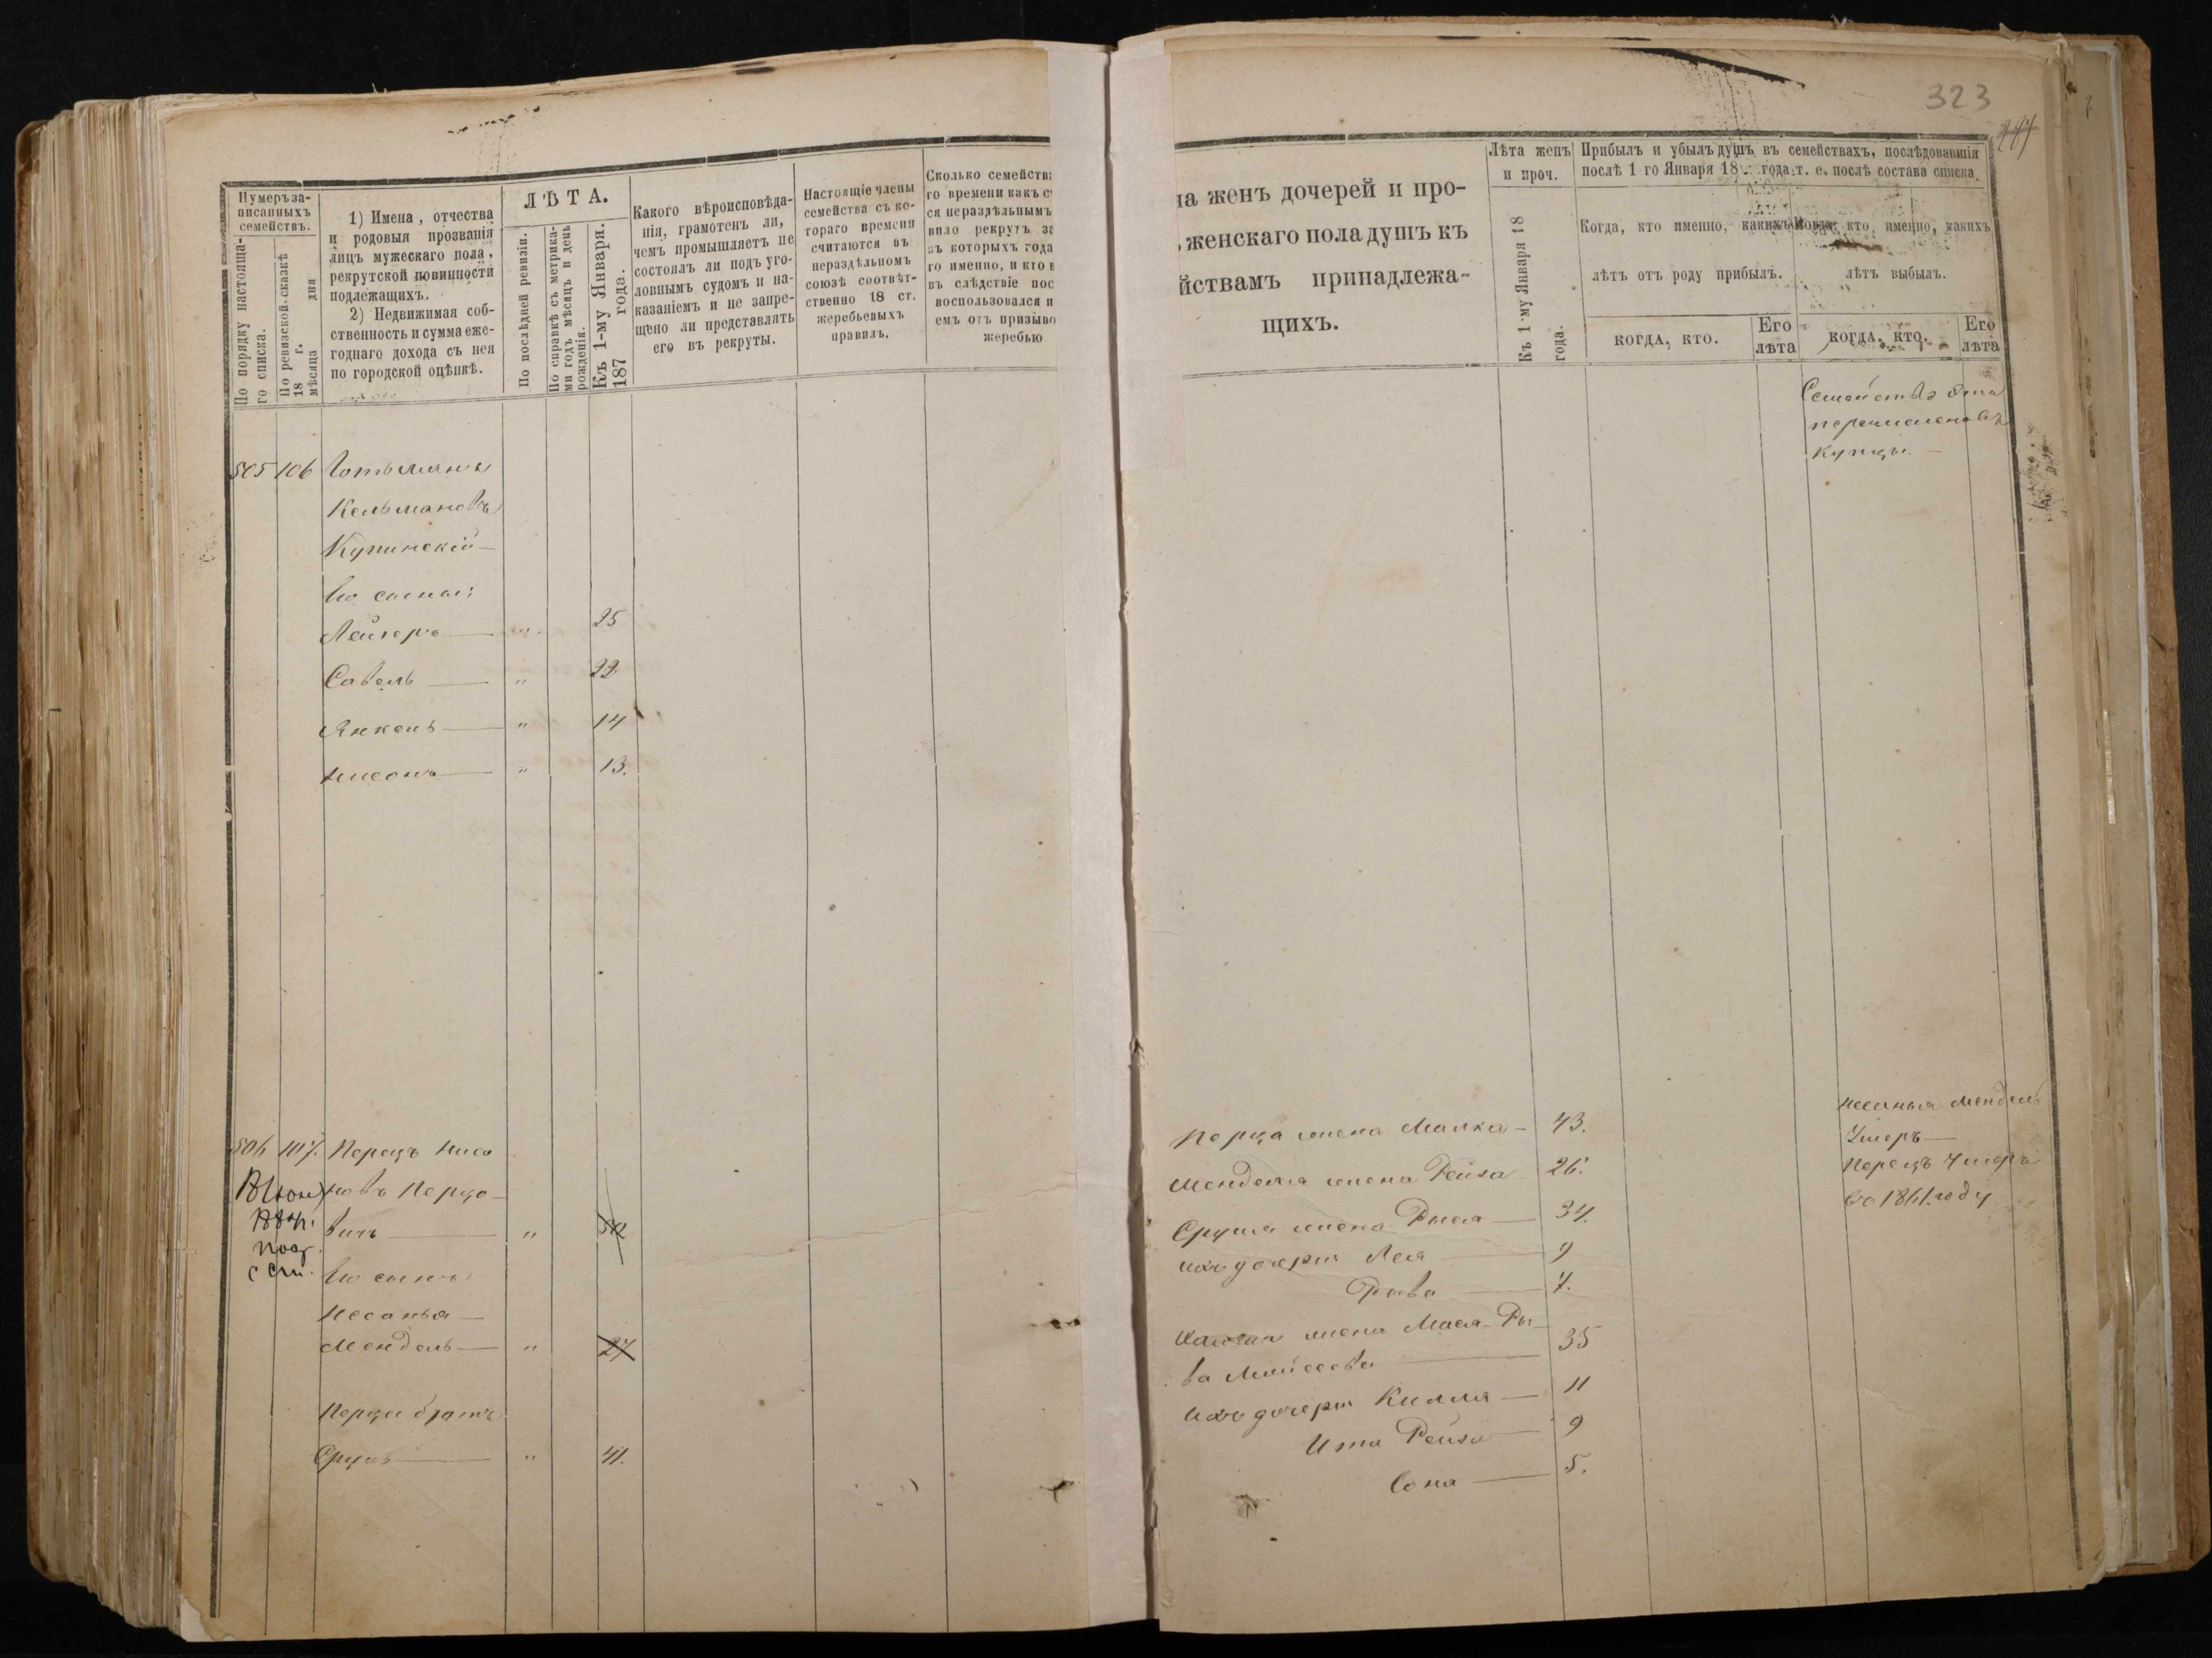 323
Нумеръ за-
писанныхъ
семействъ.
По порядку настояща-
го списка.
По ревизской сказкѣ
18 г.
мѣсяца дня
1) Имена, отчества
и родовыя прозванія
лицъ мужескаго пола,
рекрутской повинности
подлежащихъ.
2) Недвижимая соб-
ственность и сумма еже-
годнаго дохода съ нея
по городской оцѣнкѣ.
ЛѢТА.
По послѣдней ревизіи.
По справкѣ съ метрика-
ми годъ мѣсяцъ и день
рожденія.
Къ 1-му Января.
187 года.
Какого вѣроисповѣда-
нія, грамотенъ ли,
чемъ промышляетъ не
состоялъ ли подъ уго-
ловнымъ судомъ и на-
казаніемъ и не запре-
щено ли представлять
его въ рекруты.
Настоящіе члены
семейства съ ко-
тораго времени
считаются въ
нераздѣльномъ
союзѣ соотвѣт-
ственно 18 ст.
жеребьевыхъ
правилъ.
Сколько семейств
го времени какъ с
ся нераздѣльнымъ
вило рекрутъ за
въ которыхъ года
го именно, и кто в
въ слѣдствіе пос
воспользовался п
емъ отъ призыво
жеребью
на женъ дочерей и про-
женскаго пола душъ къ
йствамъ принадлежа-
щихъ.
Лѣта женъ
и проч.
Къ 1 му Января 18
года.
Прибылъ и убылъ душъ въ семействахъ, послѣдовавшія
послѣ 1 го Января 18 года, т. е. послѣ состава списка.
Когда, кто именно, какихъ
лѣтъ отъ роду прибылъ.
Когда, кто именно, какихъ
лѣтъ выбылъ.
КОГДА, КТО.
Его
лѣта
КОГДА, КТО.
Его
лѣта
Семейство это
перечислено въ
купцы.
505 106 Готьманъ
Кельмановъ
Купинскій
Его сыны:
Лейзеръ " 25
Савель " 22
Янкель " 14
Нисонъ " 13.
506 107. Перецъ Нисо
новъ Перцо-
вичъ " 52
Его сынъ
Несанья
Мендель " 27
Перца братъ
Сруль " 41.
Перца жена Малка 43.
Менделя жена Рейза 26.
Сруля жена Рыся 34.
ихъ дочери Лея 9
Рыва 7.
жена Мася-Ры-
ва Мойсеева 35
ихъ дочери Килля 11
Ита Рейза 9
Сона 5.
Несанья Мендель
Умеръ
Перецъ Умеръ
въ 1861 году